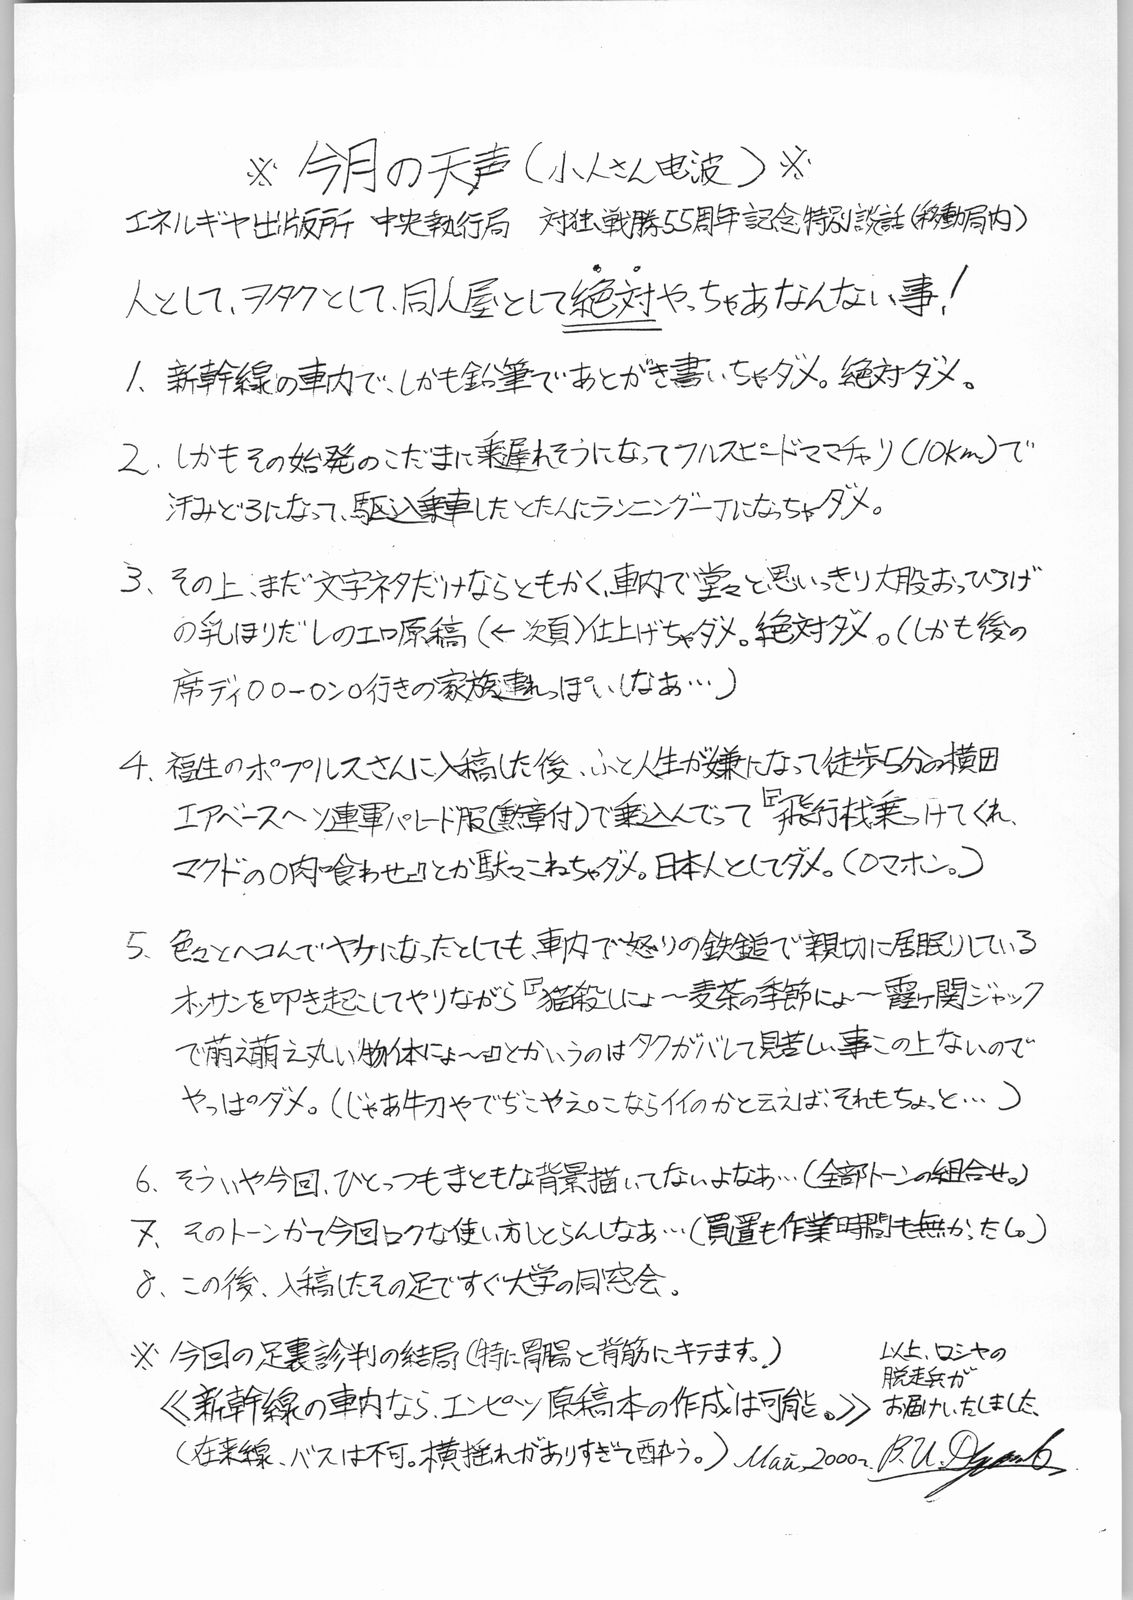 ※ 今月の天声(小人さん电波) ※
エネルギヤ出版所 中央執行局 対独戦勝55周年記念特別談話(移動局内)
人として、ヲタクとして、同人屋として絶対やっちゃあなんない事!
1、新幹線の車内で、しかも鉛筆であとがき書いちゃダメ。絶対ダメ。
2、しかもその始発のこだまに乗遅れそうになってフルスピードママチャリ(10km)で
汗みどろになって、駆込乗車したとたんにランニング一丁になっちゃダメ。
3、その上、まだ文字ネタだけならともかく、車内で堂々と思いっきり大股おっひろげ
の乳ほりだしのエロ原稿(←次頁)仕上げちゃダメ。絶対ダメ。(しかも後の
席ディ〇〇ー〇ン〇行きの家族連れっぽいしなあ…)
4、福生のポプルスさんに入稿した後、ふと人生が嫌になって徒歩5分の横田
エアベースへソ連軍パレード服(勲章付)で乗込んでって『飛行機乗っけてくれ、
マクドの〇肉喰わせ』とか駄々こねちゃダメ。日本人としてダメ。(〇マホン。)
5、色々とヘコんでヤケになったとしても、車内で怒りの鉄鎚で親切に居眠りしている
オッサンを叩き起こしてやりながら『猫殺しにょ〜麦茶の季節にょ〜霞ヶ関ジャック
で萌え萌え丸い物体にょ〜』とかいうのはタクがバレして見苦しい事この上ないので
やっぱダメ。(じゃあ牛刀やでぢこやえ〇こならイイのかと云えば、それもちょっと…)
6、そういや今回、ひとっつもまともな背景描いてないよなあ…(全部トーンの組合せ。)
7、そのトーンかて今回ロクな使い方しとらんしなあ…(買置も作業時間も無かったし。)
8、この後、入稿したその足ですぐ大学の同窓会。
※ 今回の足裏診判の結局(特に胃腸と背筋にキテます。)
≪新幹線の車内なら、エンピツ原稿本の作成は可能。≫
(在来線、バスは不可。横揺れがありすぎて酔う。)
以上、ロシヤの
脱走兵が
お届けいたしました、
Май, 2000г.